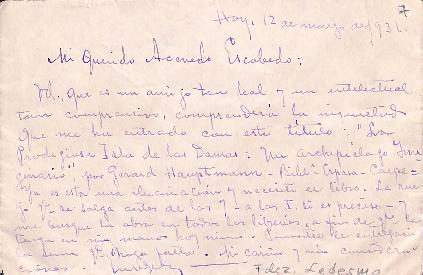 7
Hoy, 12 de marzo de 1931.
Mi Querido Acevedo Escobedo:
Vd., que es un amigo tan leal y un intelectual
tan comprensivo, comprenderá la inquietud
que me ha entrado con este título: "La
Prodigiosa Isla de las Damas: Un archipiélago Imagi
nario" por Gerard Hauptmann -
Ya es esta una alucinación y necesito el libro. Le rue
go Vd. se salga antes de las 7 - a las 5. si es preciso - y
me busque la obra en todas las librerías, a fin de
tenga en mi mano hoy mismo.
la suma Vd. haga falta. Mi cariño y mi considera
ciones
Fdez. Ledesma